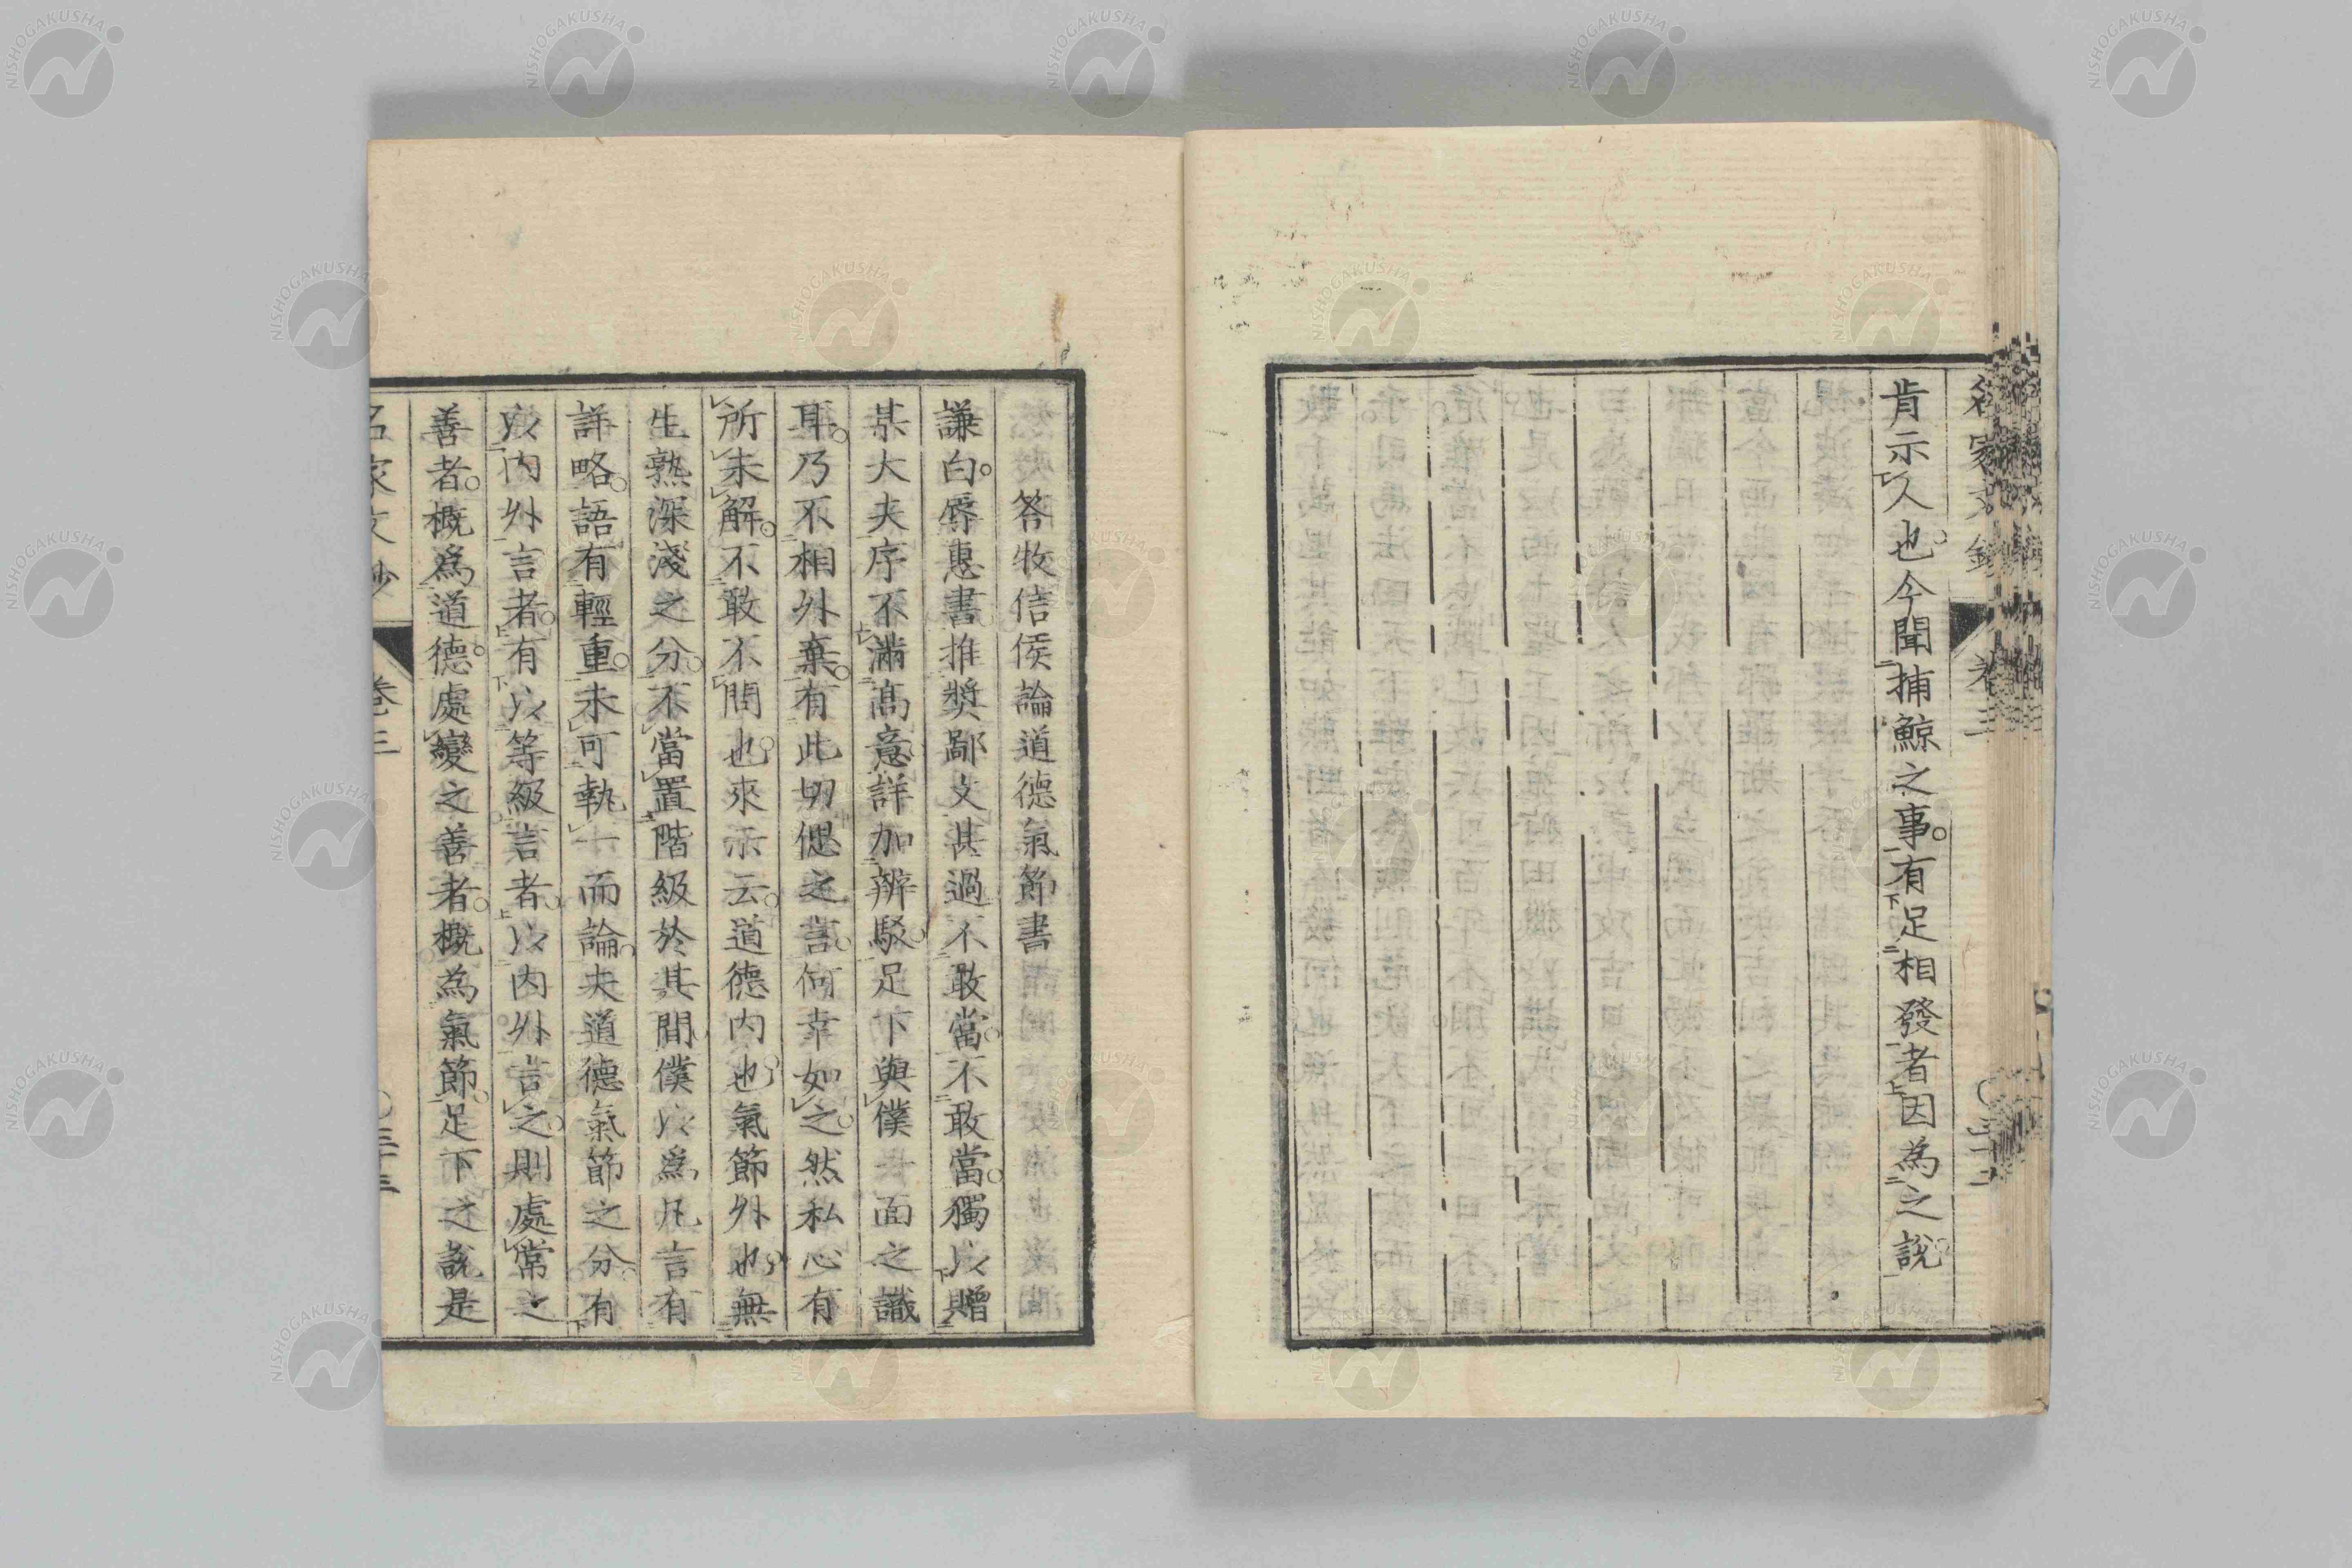 名家文鈔
卷三
肯示人也今聞捕鯨之事有足相發者因為之說
答牧信侯論道德氣節書
謙白辱惠書推奬鄙文甚過不敢當不敢當獨以贈
某大夫序不滿高意詳加辨駁足下與僕一面之識
耳乃不相外棄有此切偲之言何幸如之然私心有
所未解不敢不問也來示云道德内也氣節外也無
生熟深淺之分不當置階級於其間僕以爲凡言有
詳略語有輕重未可執一而論夫道德氣節之分有
以内外言者有以等級言者以内外言之則處常之
善者概爲道德處變之善者概為氣節足下之說是
名家文鈔
卷三
三十三
NISHOGAKUSHA